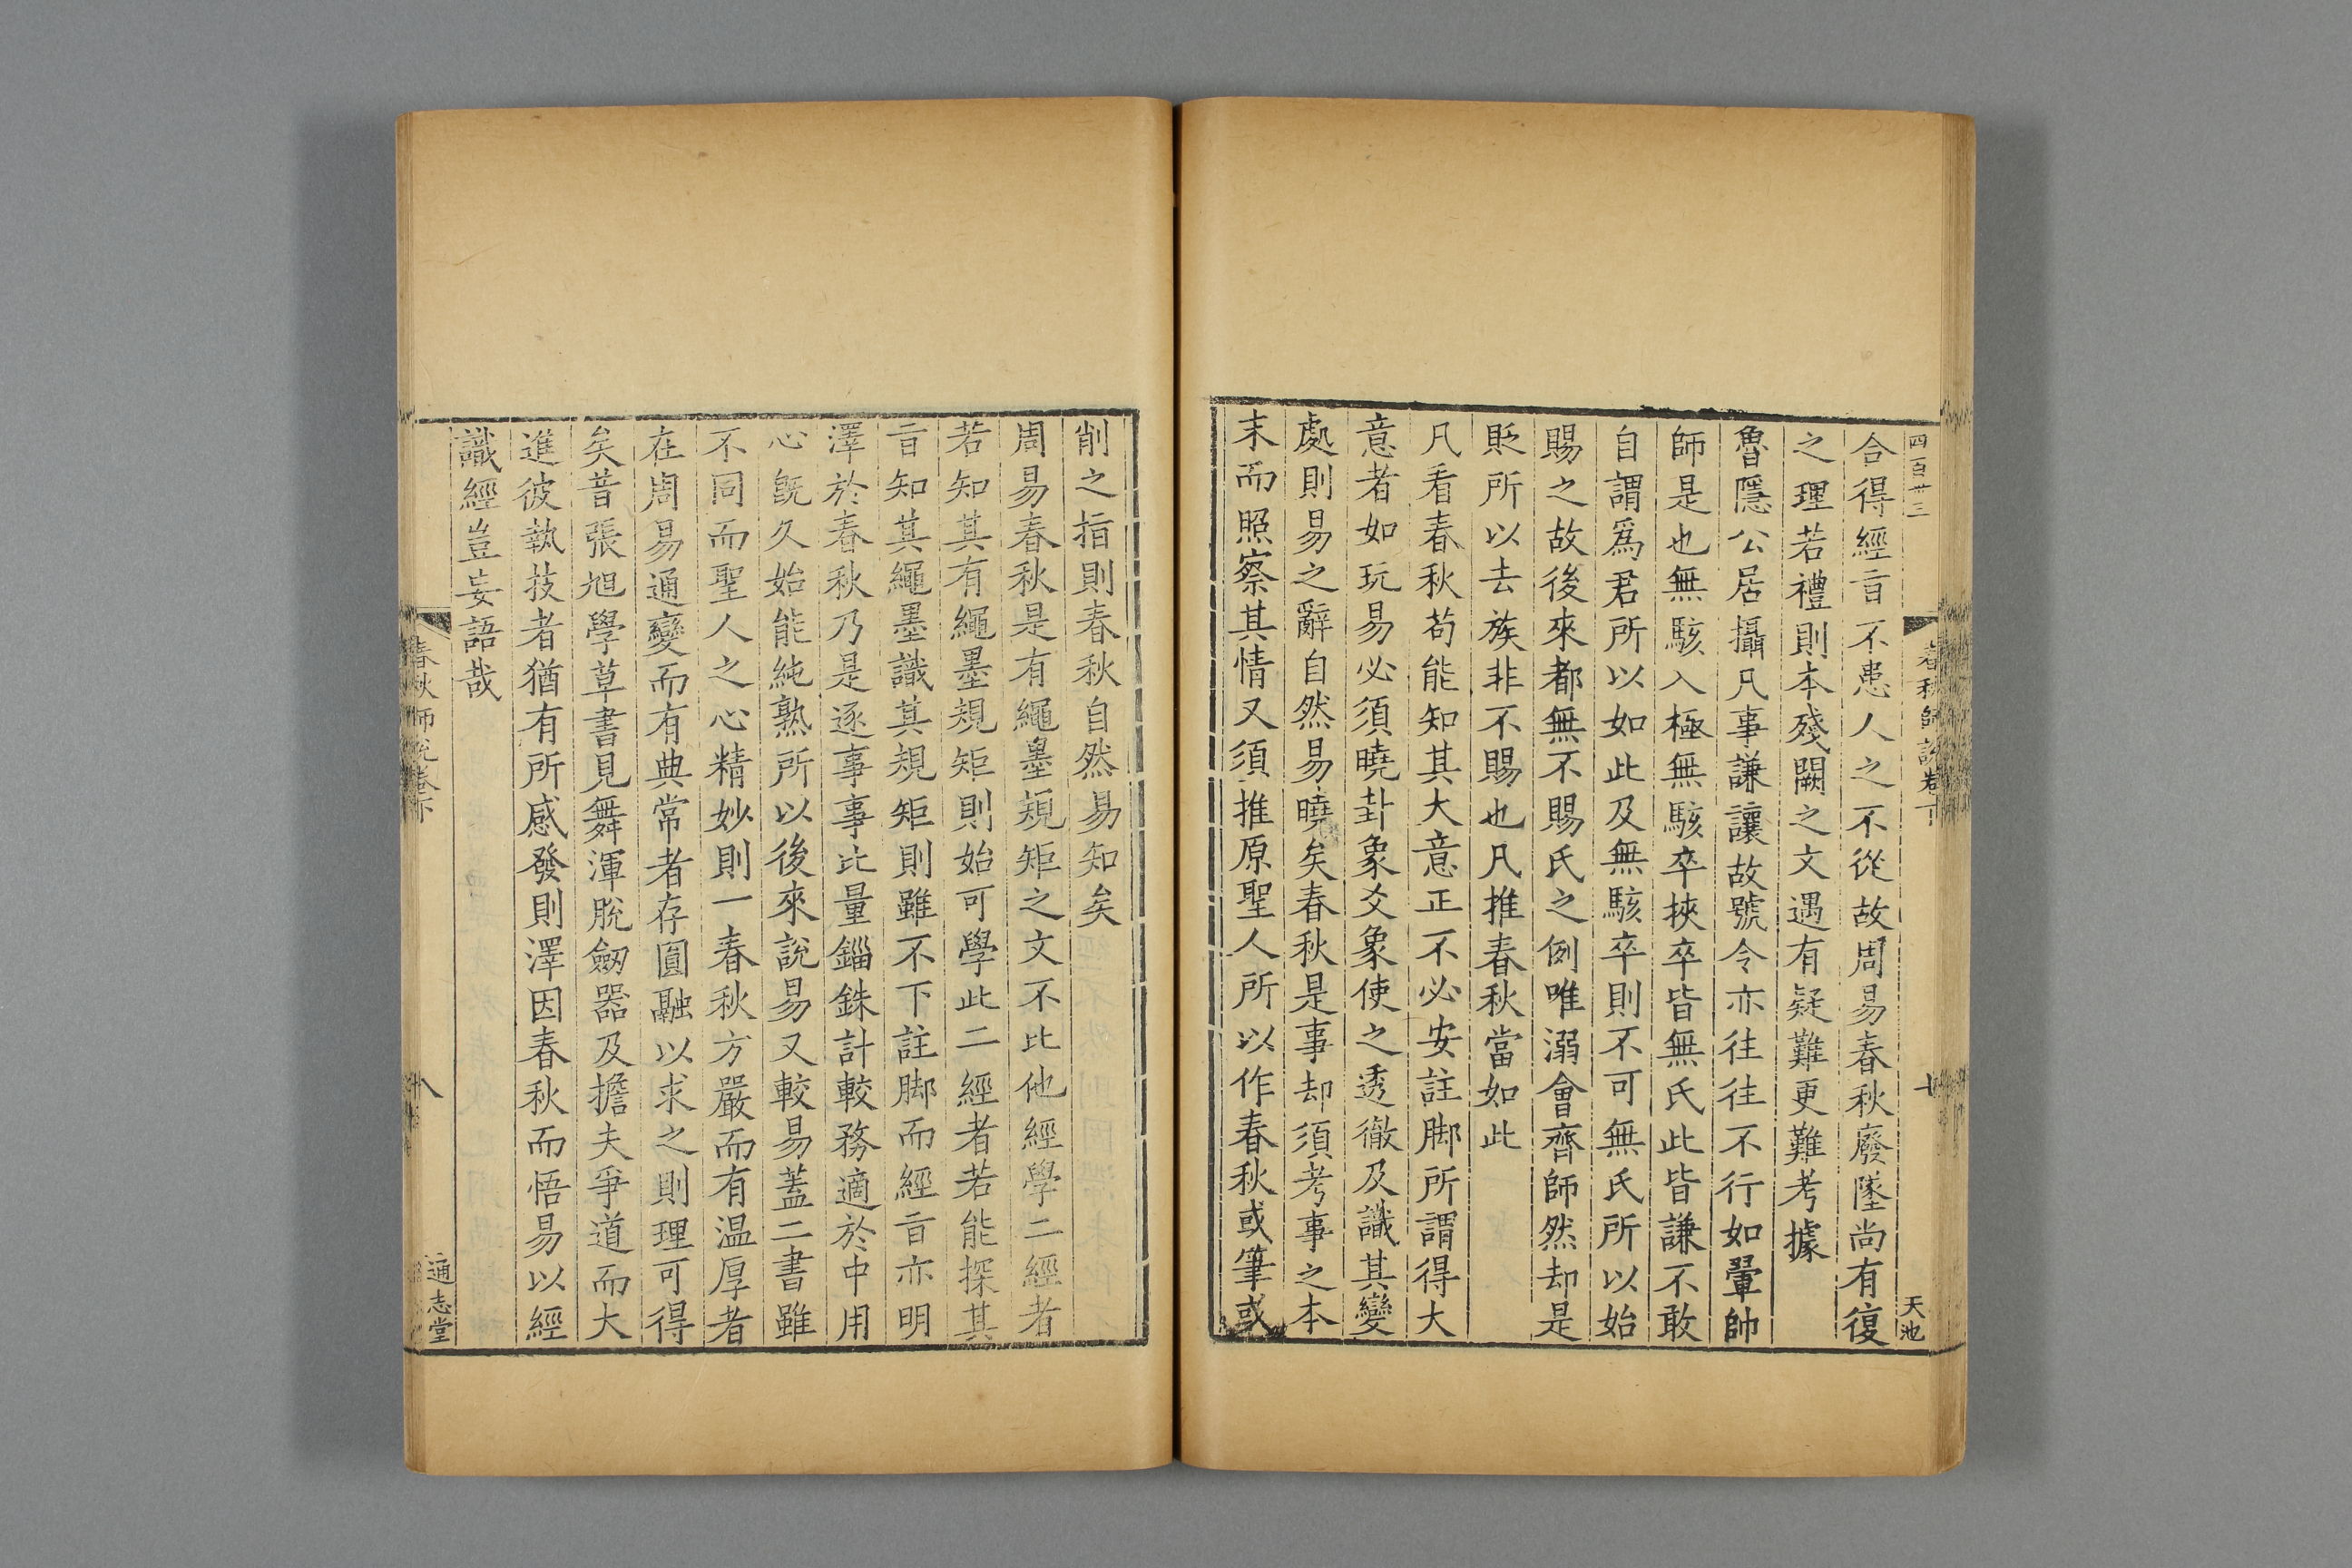 四百廿三
春秋師說卷下
天池
合得經㫖不患人之不從故周易春秋廢墜尚有復
之理若禮則本殘闕之文遇有疑難更難考據
魯隱公居攝凡事謙讓故號令亦往往不行如翬帥
師是也無駭入極無駭卒挾卒皆無氏此皆謙不敢
自謂爲君所以如此及無駭卒則不可無氏所以始
賜之故後來都無不賜氏之例唯溺會齊師然却是
貶所以去族非不賜也凡推春秋當如此
凡看春秋苟能知其大意正不必安註脚所謂得大
意者如玩易必須曉卦象爻象使之透徹及識其變
處則易之辭自然易曉矣春秋是事却須考事之本
末而照察其情又須推原聖人所以作春秋或筆或
削之指則春秋自然易知矣
周易春秋是有繩墨規矩之文不比他經學二經者
若知其有繩墨規矩則始可學此二經者若能探其
㫖知其繩墨識其規矩則雖不下註脚而經㫖亦明
澤於春秋乃是逐事事比量錙銖計較務適於中用
心旣久始能純熟所以後來說易又較易蓋二書雖
不同而聖人之心精妙則一春秋方嚴而有温厚者
在周易通變而有典常者存圓融以求之則理可得
矣昔張旭學草書見舞渾脫劒器及擔夫爭道而大
進彼執技者猶有所感發則澤因春秋而悟易以經
識經豈妄語哉
春秋師說卷下
十八
通志堂